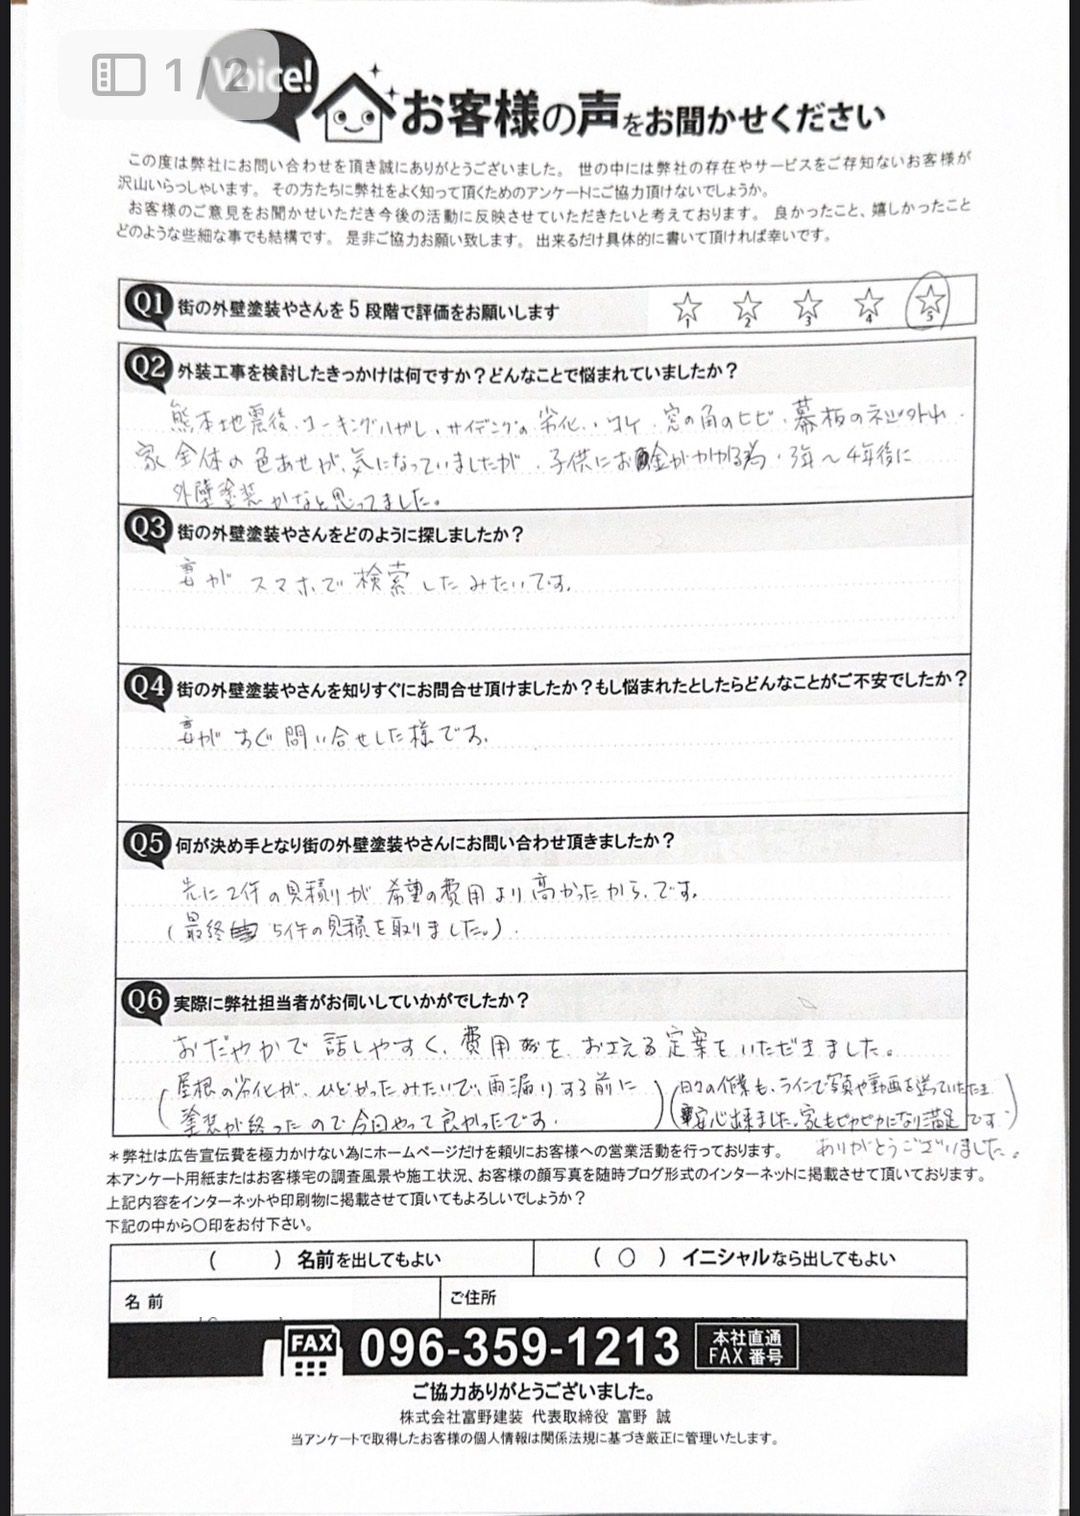 1/2
Voice!
お客様の声をお聞かせください
この度は弊社にお問い合わせを頂き誠にありがとうございました。 世の中には弊社の存在やサービスをご存知ないお客様が
沢山いらっしゃいます。 その方たちに弊社をよく知って頂くためのアンケートにご協力頂けないでしょうか。
お客様のご意見をお聞かせいただき今後の活動に反映させていただきたいと考えております。 良かったこと、嬉しかったこと
どのような些細な事でも結構です。 是非ご協力お願い致します。 出来るだけ具体的に書いて頂ければ幸いです。
Q1 街の外壁塗装やさんを5段階で評価をお願いします ☆1 ☆2 ☆3 ☆4 ☆5
Q2 外装工事を検討したきっかけは何ですか？どんなことで悩まれていましたか？
熊本地震後、コーキングハガレ、サイデングの劣化、コケ、窓の角のヒビ、幕板のネジ外れ、
家全体の色あせが、気になっていましたが、子供にお金がかかる為、3年〜4年後に
外壁塗装かなと思ってました。
Q3 街の外壁塗装やさんをどのように探しましたか？
妻が スマホで検索したみたいです。
Q4 街の外壁塗装やさんを知りすぐにお問合せ頂けましたか？もし悩まれたとしたらどんなことがご不安でしたか？
妻が すぐ問い合せした様です。
Q5 何が決め手となり街の外壁塗装やさんにお問い合わせ頂きましたか？
先に2件の見積りが希望の費用より高かったから、です。
(最終 5件の見積を取りました。)
Q6 実際に弊社担当者がお伺いしていかがでしたか？
おだやかで話しやすく、費用をおさえる定案をいただきました。
(屋根の劣化が、ひどかったみたいで、雨漏りする前に
塗装が終ったので今回やって良かったです。)
(日々の作業も、ラインで写真や動画を送っていただき
安心出来ました。家もピカピカになり満足です。)
ありがとうございました。
＊弊社は広告宣伝費を極力かけない為にホームページだけを頼りにお客様への営業活動を行っております。
本アンケート用紙またはお客様宅の調査風景や施工状況、お客様の顔写真を随時ブログ形式のインターネットに掲載させて頂いております。
上記内容をインターネットや印刷物に掲載させて頂いてもよろしいでしょうか？
下記の中から〇印をお付下さい。
(　　) 名前を出してもよい (〇) イニシャルなら出してもよい
名前 ご住所
FAX 096-359-1213 本社直通 FAX番号
ご協力ありがとうございました。
株式会社富野建装 代表取締役 富野 誠
当アンケートで取得したお客様の個人情報は関係法規に基づき厳正に管理いたします。